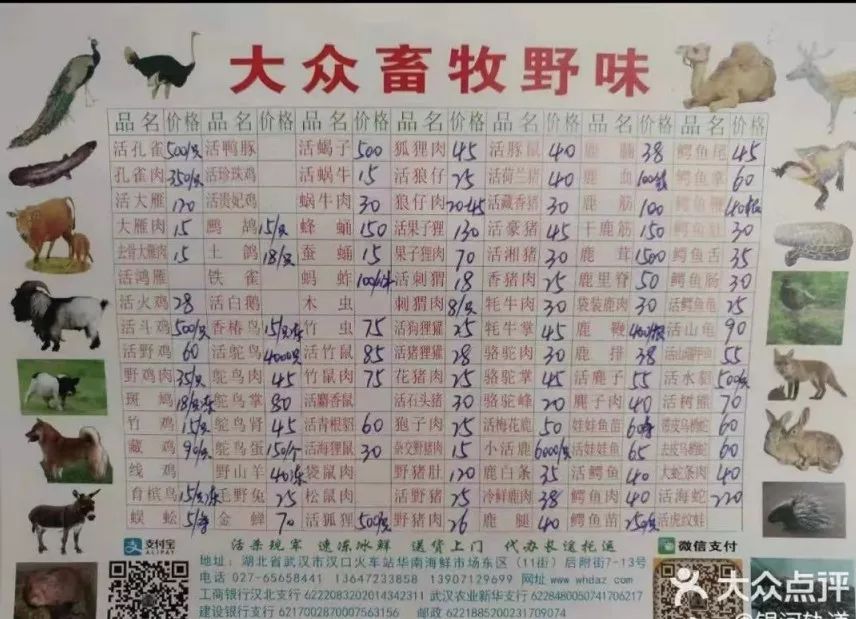 大众畜牧野味
品名 价格 品名 价格 品名 价格 品名 价格 品名 价格 品名 价格 品名 价格
活孔雀 500/只 活鸭豚 活蝎子 500 狐狸肉 45 活豚鼠 40 鹿 38 鳄鱼尾 45
孔雀肉 350/只 活珍珠鸡 活蜗牛 15 活狼仔 25 活荷兰猪 40 鹿血 鳄鱼掌 60
活大雁 120 活贵妃鸡 蜗牛肉 30 狼仔肉 20-45 活藏香猪 30 鹿筋 100 鳄鱼
大雁肉 15 鹧鸪 15/只 蜂蛹 150 活果子狸 130 活豪猪 45 干鹿筋 150 鳄鱼肚 30
去骨大雁肉 15 土鸽 18/只 蚕蛹 15 果子狸肉 70 活湘猪 30 鹿茸 1500 鳄鱼舌 35
活鸿雁 铁雀 蚂蚱 活刺猬 18 香猪肉 25 鹿里脊 50 鳄鱼肠 30
活火鸡 28 活白鹅 木虫 刺猬肉 8/只 牦牛肉 30 袋装鹿肉 30 活鳄鱼龟 25
活斗鸡 500/只 香椿鸟 竹虫 75 活狗狸獾 25 牦牛掌 45 鹿鞭 活山龟 90
活野鸡 60 活鸵鸟 4000只 活竹鼠 85 活猪狸獾 28 骆驼肉 30 鹿排 38 55
野鸡肉 35/只 鸵鸟肉 45 竹鼠肉 75 花猪肉 25 骆驼掌 45 活鹿子 55 活水貂 500/只
斑鸠 鸵鸟掌 80 活麝香鼠 活石头猪 30 骆驼峰 20 鹿子肉 40 活树熊 70
竹鸡 15/只 鸵鸟肾 45 活青根貂 60 狍子肉 25 活梅花鹿 50 娃娃鱼苗 60
藏鸡 90/只 鸵鸟蛋 150/个 活海狸鼠 30 杂交野猪肉 15 小活鹿 6000/只 活娃娃鱼 65 去皮乌梢蛇 60
线鸡 野山羊 袋鼠肉 野猪肚 120 鹿白条 35 活鳄鱼 40 大蛇条肉 40
育槟鸟 毛野兔 25 松鼠肉 活野猪 25 冷鲜鹿肉 38 鳄鱼肉 40 活海蛇 220
蜈蚣 金蝉 70 活狐狸 500/只 野猪肉 26 鹿腿 40 鳄鱼苗 250/只 活虎纹蛙
支付宝 活杀现宰 速冻冰鲜 送货上门 代办长途托运 微信支付
ALIPAY
地址：湖北省武汉市汉口火车站华南海鲜市场东区（11街）后附街7-13号
电话 027-65658441 13647233858 13907129699 网址 www·whdaz·com
工商银行汉北支行 6222083202014342311 武汉农业新华支行 6228480050741706217
建设银行支行 6217002870007563156 邮政 6221885200231709074
大众点评
@银河轨道